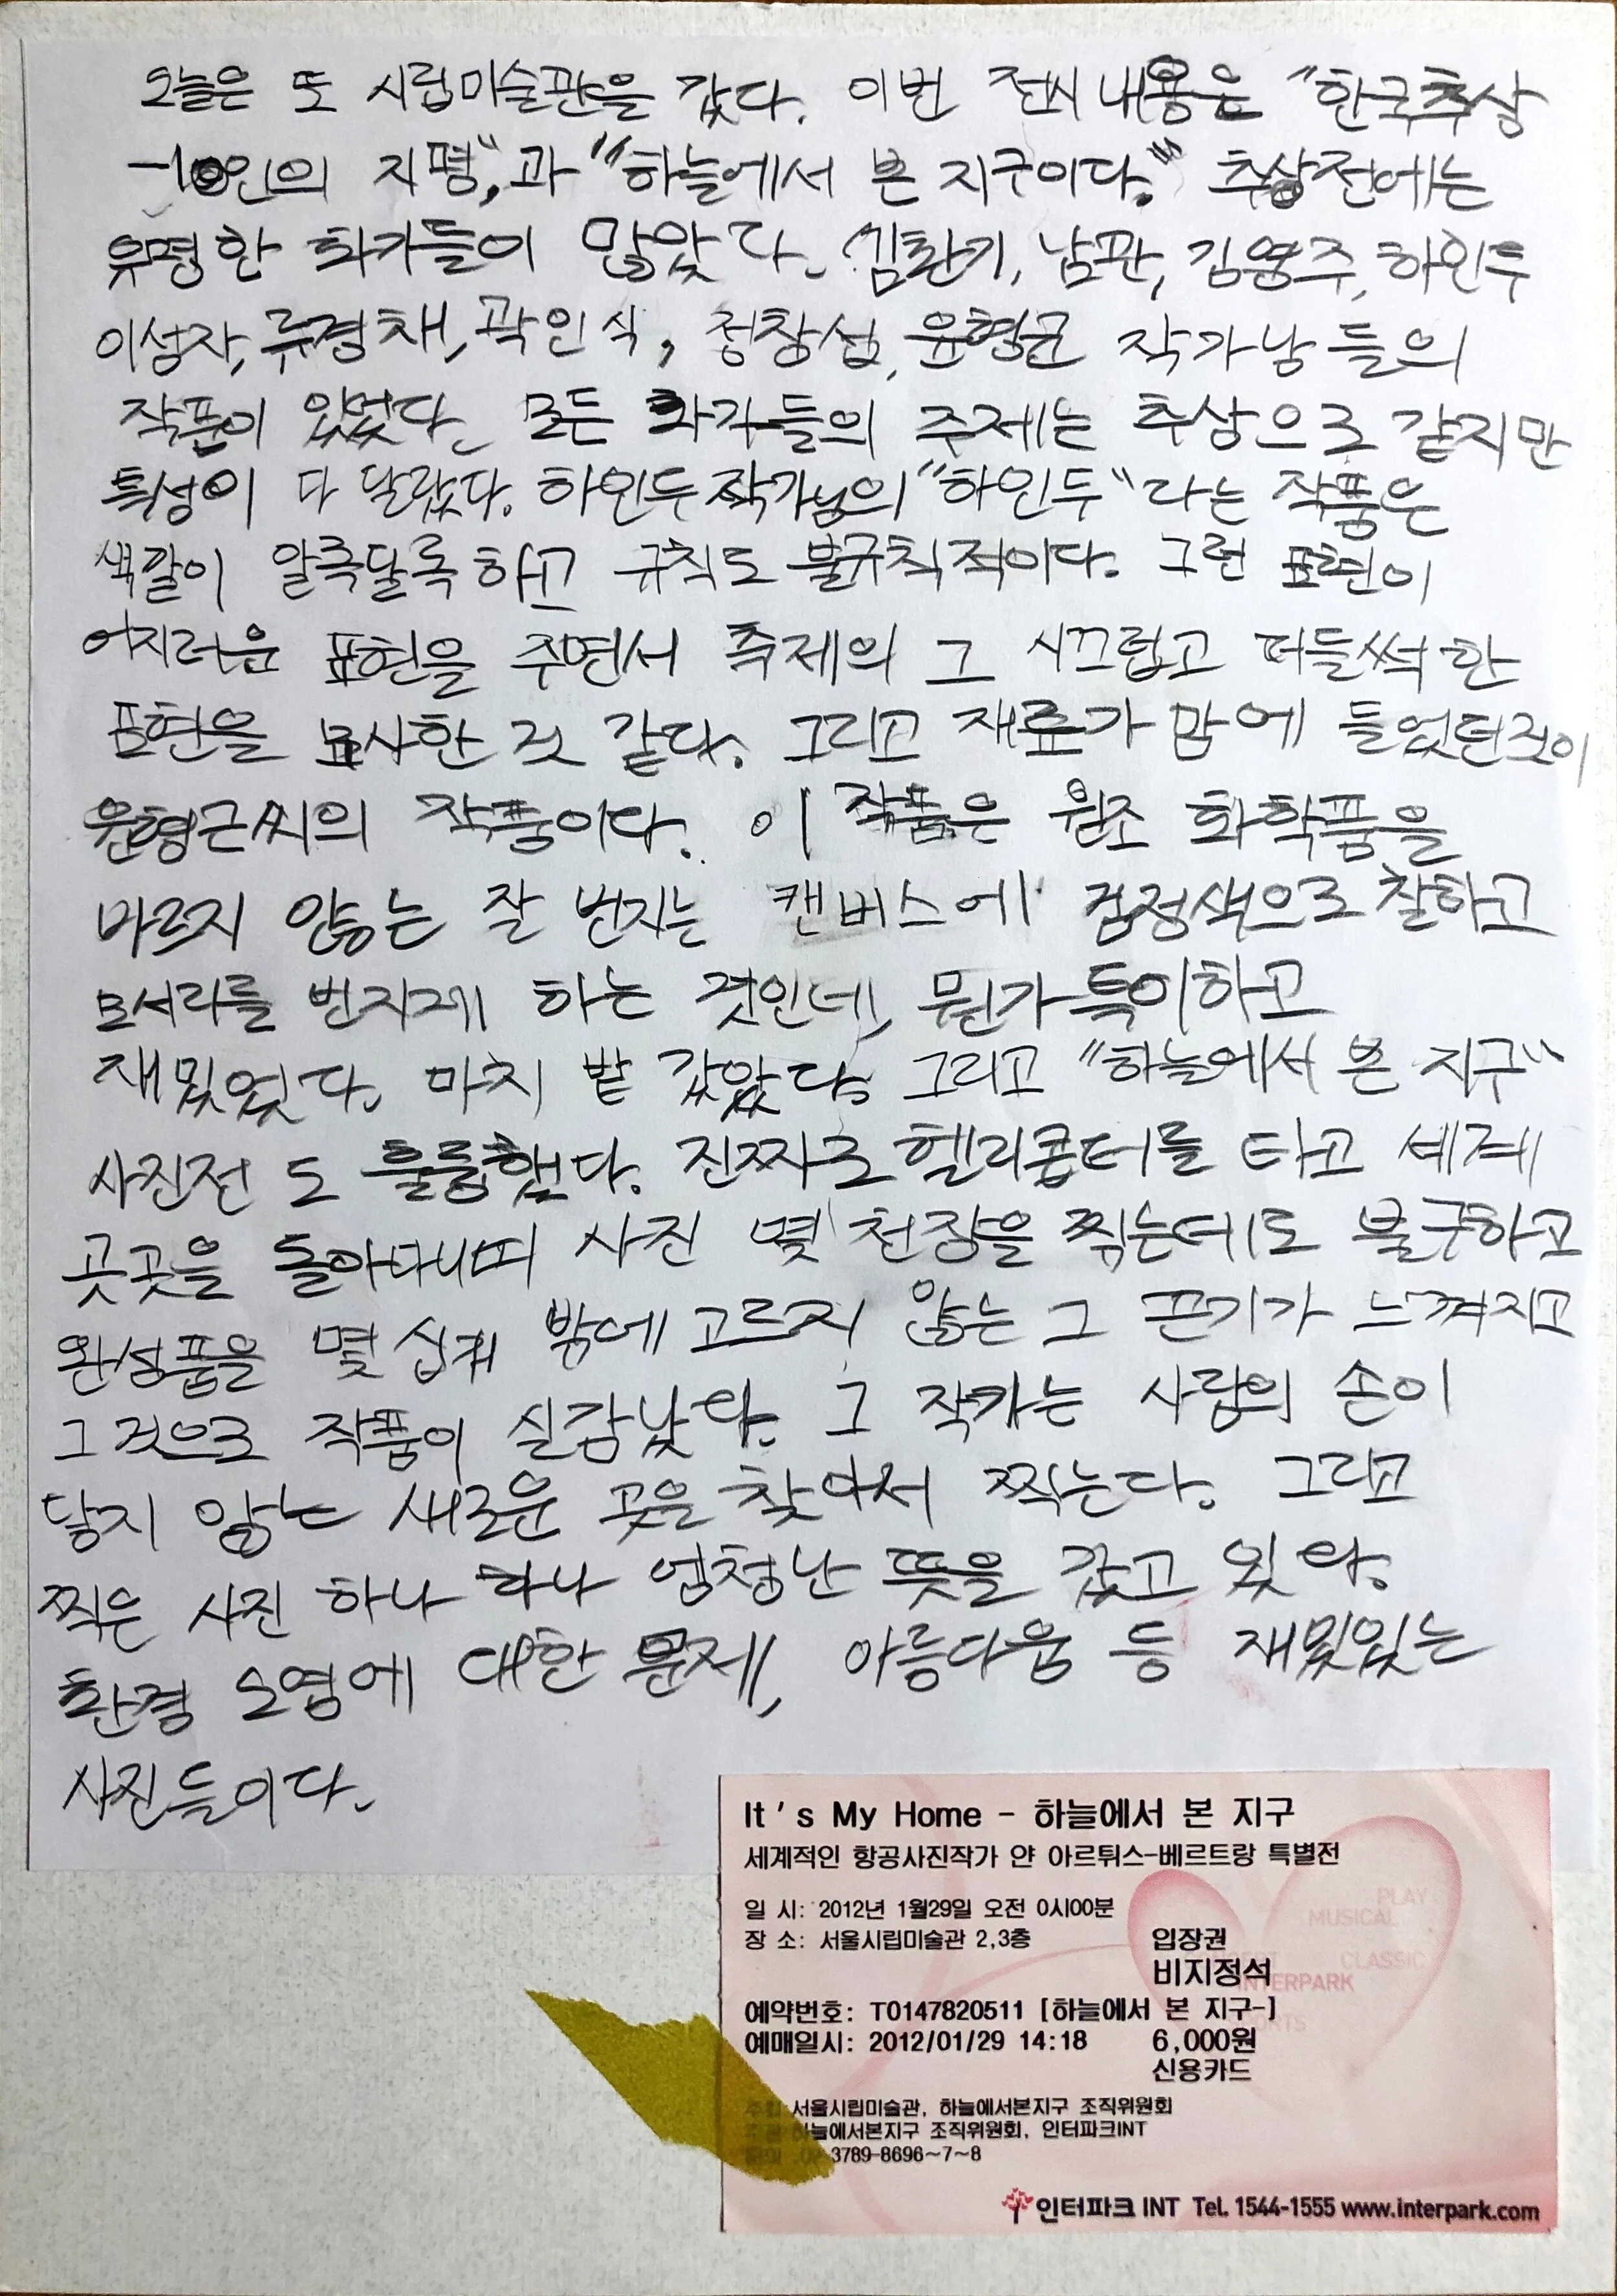 오늘은 또 시립미술관을 갔다. 이번 전시 내용은 "한국추상
-10인의 지평", 과 "하늘에서 본 지구이다." 추상전에는
유명한 화가들이 많았다. 김환기, 남관, 김영주, 하인두
이성자, 류경채, 곽인식, 정창섭, 윤형근 작가님들의
작품이 있었다. 모든 화가들의 주제는 추상으로 같지만
특성이 다 달랐다. 하인두 작가님의 "하인두"라는 작품은
색깔이 알록달록 하고 규칙도 불규칙적이다. 그런 표현이
어지러운 표현을 주면서 축제의 그 시끄럽고 떠들썩한
표현을 묘사한 것 같다. 그리고 재료가 맘에 들었던것이
윤형근씨의 작품이다. 이 작품은 원조 화학품을
바르지 않는 잘 번지는 캔버스에 검정색으로 칠하고
모서리를 번지게 하는 것인데, 뭔가 특이하고
재밌었다. 마치 밭 같았다. 그리고 "하늘에서 본 지구"
사진전 도 훌륭했다. 진짜로 헬리콥터를 타고 세계
곳곳을 돌아다니며 사진 몇 천장을 찍는데도 불구하고
완성품을 몇 십개 밖에 고르지 않는 그 끈기가 느껴지고
그것으로 작품이 실감났다. 그 작가는 사람의 손이
닿지 않는 새로운 곳을 찾아서 찍는다. 그리고
찍은 사진 하나 하나 엄청난 뜻을 갖고 있다.
환경 오염에 대한 문제, 아름다움 등 재밌있는
사진들이다.
It's My Home - 하늘에서 본 지구
세계적인 항공사진작가 얀 아르튀스-베르트랑 특별전
일 시: 2012년 1월29일 오전 0시00분
장 소: 서울시립미술관 2,3층
입장권
비지정석
예약번호: T0147820511 [하늘에서 본 지구-]
예매일시: 2012/01/29 14:18
6,000원
신용카드
서울시립미술관, 하늘에서본지구 조직위원회
하늘에서본지구 조직위원회, 인터파크INT
3789-8696~7~8
PLAY
MUSICAL
CLASSIC
INTERPARK
인터파크 INT Tel. 1544-1555 www.interpark.com